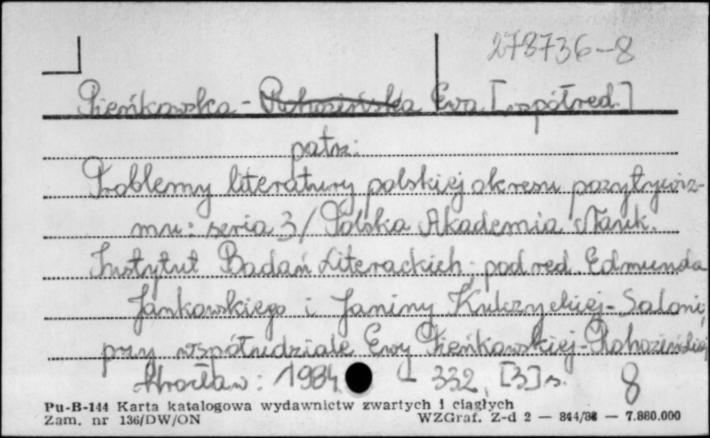 278736-8
Pieńkowska - Rohozińska Ewa [współred.]
patrz:
Problemy literatury polskiej okresu pozytywiz-
mu: seria 3 / Polska Akademia Nauk.
Instytut Badań Literackich; pod red. Edmunda
Jankowskiego i Janiny Kulczyckiej-Saloni,
przy współudziale Ewy Pieńkowskiej-Rohozińskiej
Wrocław: 1984 - 332, [3] s. 8
Pu-B-144 Karta katalogowa wydawnictw zwartych i ciągłych
Zam. nr 136/DW/ON WZGraf. Z-d 2 — 844/88 — 7.880.000